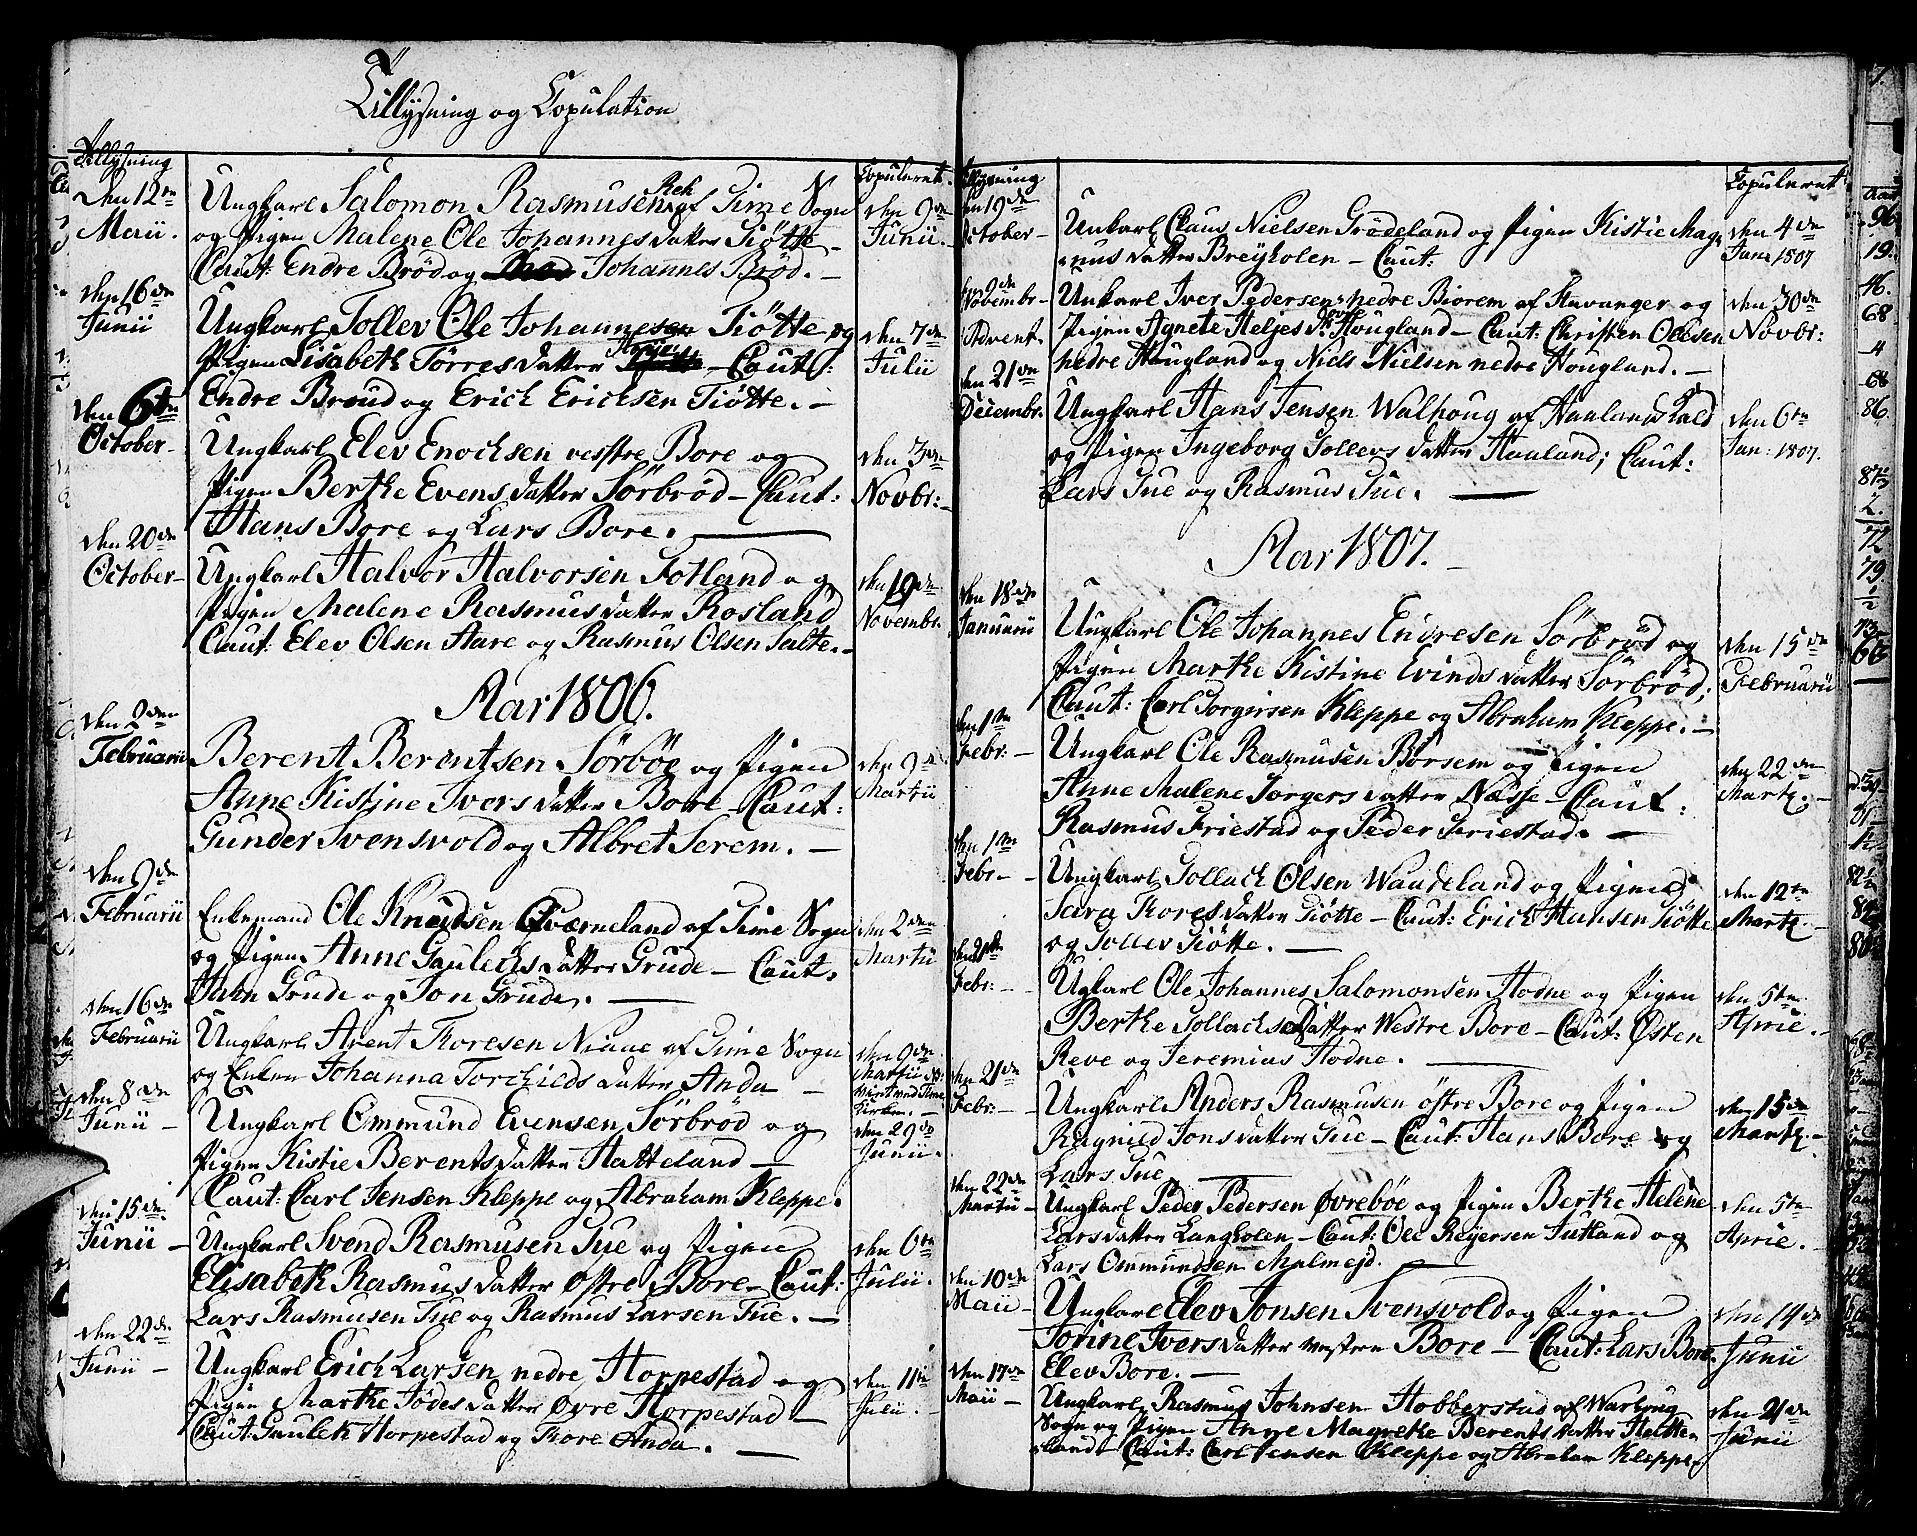 Tillysning og Copulation
Tillysning
Copuleret
den 12te Maii.
Ungkarl Salomon Rasmusen Reh af Time Sogn
og Pigen Malene Ole Johannesdatter Tiøtte –
Caut: Endre Brød og Johannes Brød. –
den 9de Junii.
den 16de Junii
Ungkarl Tollev Ole Johannesen Tiøtte og
Pigen Lisabeth Törresdatter – Caut:
Endre Braud og Erich Ericksen Tiøtte. –
den 7de Julii
den 6te October –
Ungkarl Elev Enochsen vestre Bore og
Pigen Berthe Evensdatter Sörbröd – Caut:
Hans Bore og Lars Bore. –
den 3de Novbr: –
den 20de October –
Ungkarl Halvor Halvorsen Totland og
Pigen Malene Rasmusdatter Rosland
Caut: Elev Olsen Aare og Rasmus Olsen Salte. –
den 19de Novembr.
Aar 1806.
den 9den Februarii
Berent Berentsen Sörböe og Pigen
Anne Kistine Iversdatter Bore – Caut:
Gunder Svensvold og Albret Serem. –
den 9de Martii
den 9de Februarii
Enkemand Ole Knudsen Qværneland af Time Sogn
og Pigen Anne Gaulechsdatter Grude – Caut.
Grude og Jon Grude. –
den 2den Martii
den 16de Februarii
Ungkarl Arent Thoresen Niaae af Time Sogn
og Enken Johanna Torchildsdatter Anda –
den 9de Martii
viet ved Time Kirken. –
den 8de Junii –
Ungkarl Ommund Evensen Sörbröd og
Pigen Kistie Berentsdatter Hatteland –
Caut: Carl Jensen Kleppe og Abraham Kleppe.
den 29de Junii.
den 15de Junii –
Ungkarl Svend Rasmusen Tue og Pigen
Elisabeth Rasmusdatter østre Bore – Caut:
Lars Rasmusen Tue og Rasmus Larsen Tue. –
den 6te Julii.
den 22de Junii –
Ungkarl Erich Larsen nedre Horpestad og
Pigen Marthe Tödesdatter øvre Horpestad –
Caut: Gaulek Horpestad og Thore Anda. –
den 11te Julii.
Tillysning
Copuleret
den 19de October –
Unkarl Claus Nielsen Grödeland og Pigen Kistie Mag-
nusdatter Breyholen – Caut:
den 4de Janr 1807
Novembr –
Unkarl Iver Pedersen nedre Biorem af Stavanger og
Pigen Agnete Heljesdr. øvre Hougland – Caut: Christen Olesen
nedre Hougland og Niels Nielsen nedre Hougland. –
den 30de Novbr:
Advent.
den 21de Decembr.
Ungkarl Hans Jensen Walhoug af Haalands Kald
og Pigen Ingeborg Tollevsdatter Haaland; Caut:
Lars Tue og Rasmus Tue. –
den 6te Jan: 1807.
Aar 1807. –
den 18de Januarii
Ungkarl Ole Johannes Endresen Sörbröd og
Pigen Marthe Kistine Evindsdatter Sörbröd;
Caut: Carl Torgersen Kleppe og Abraham Kleppe. –
den 15de Februarii
den 1te Febr: –
Ungkarl Ole Rasmusen Börsem og Pigen
Anne Malene Torgersdatter Næsse – Caut:
Rasmus Friestad og Peder Friestad. –
den 22de Martz. –
den 1te Febr –
Ungkarl Gollach Olsen Waudeland og Pigen
Sara Thoresdatter Tiötte – Caut: Erich Hansen Tiötte
og Tollev Tiötte. –
den 12te Martz. –
Febr: –
Ugkarl Ole Johannes Salomonsen Hodne og Pigen
Berthe Gollachsdatter Westre Bore – Caut: Østen
Reve og Jeremias Hodne. –
den 5te Aprie. –
den 21de Febr: –
Ungkarl Anders Rasmusen östre Bore og Pigen
Ragnild Jonsdatter Tue – Caut: Hans Bore og
Lars Tue –
den 15de Martz. –
den 22de Martii –
Ungkarl Peder Pedersen Øvreböe og Pigen Berthe Helene
Larsdatter Langholen – Caut: Ole Reyersen Jutland og
Lars Ommundsen Malmejd. –
den 5te Aprie. –
den 10de Maii –
Ungkarl Elev Jonsen Svensvold og Pigen
Torine Iversdatter vestre Bore – Caut: Lars Bore
Elev Bore. –
den 14de Junii
den 17de Maii –
Ungkarl Rasmus Johnsen Hobberstad af Warhoug
Sogn og Pigen Anne Magrethe Berentsdatter Hatte-
land – Caut: Carl Jensen Kleppe og Abraham Kleppe
den 21de Junii